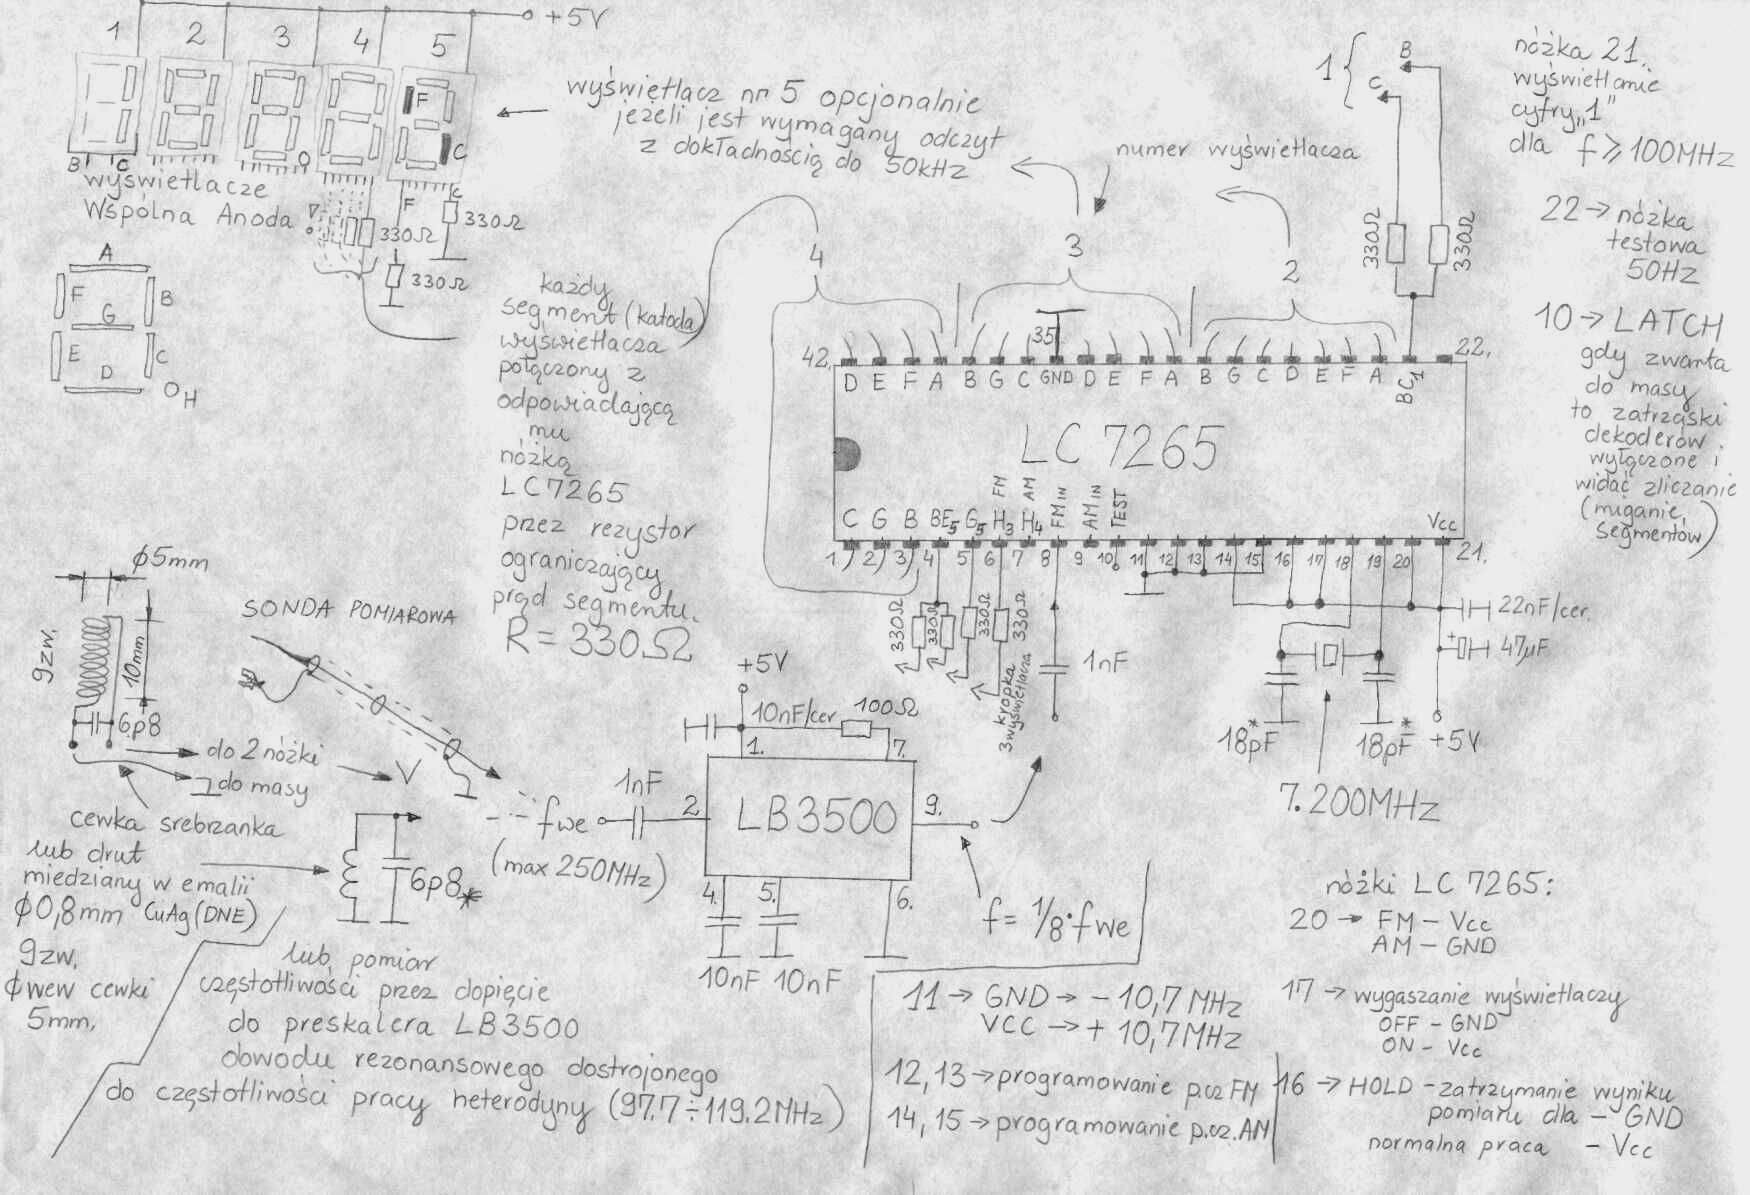 +5V
1 2 3 4 5
F
C
B C
wyświetlacze
Wspólna Anoda
F
C
330Ω
330Ω
330Ω
wyświetlacz nr 5 opcjonalnie
jeżeli jest wymagany odczyt
z dokładnością do 50kHz
numer wyświetlacza
1
B
C
330Ω
330Ω
nóżka 21.
wyświetlanie
cyfry „1"
dla f ⩾ 100MHz
22 → nóżka
testowa
50Hz
10 → LATCH
gdy zwarta
do masy
to zatrzaski
dekoderów
wyłączone i
widać zliczanie
(miganie
segmentów)
A
F
B
G
E
C
D
H
każdy
segment (katoda)
wyświetlacza
połączony z
odpowiadającą
mu
nóżką
LC7265
przez rezystor
ograniczający
prąd segmentu.
R = 330Ω
4
3
2
42.
35
22.
D E F A B G C GND D E F A B G C D E F A BC1
LC 7265
C G B BE5 G5 H3 FM H4 AM FM IN AM IN TEST
Vcc
1 2 3 4 5 6 7 8 9 10 11 12 13 14 15 16 17 18 19 20 21.
330Ω
330Ω
330Ω
330Ω
kropka
3wyświetlacza
1nF
22nF/cer.
+
47μF
18pF*
18pF*
+5V
7.200MHz
ϕ5mm
9zw.
10mm
6p8
do 2 nóżki
do masy
SONDA POMIAROWA
cewka srebrzanka
lub drut
miedziany w emalii
ϕ0,8mm CuAg (DNE)
9zw.
ϕwew cewki
5mm.
6p8*
+5V
10nF/cer
100Ω
1.
7.
1nF
fwe
(max 250MHz)
2
LB3500
9.
4.
5.
6.
10nF 10nF
f= 1/8·fwe
lub pomiar
częstotliwości przez dopięcie
do preskalera LB3500
obwodu rezonansowego dostrojonego
do częstotliwości pracy heterodyny (97.7÷119.2MHz)
11 → GND → - 10,7 MHz
VCC → + 10,7MHz
12, 13 → programowanie p.cz FM
14, 15 → programowanie p.cz. AM
nóżki LC 7265:
20 → FM - Vcc
AM - GND
17 → wygaszanie wyświetlaczy
OFF - GND
ON - Vcc
16 → HOLD - zatrzymanie wyniku
pomiaru dla - GND
normalna praca - Vcc